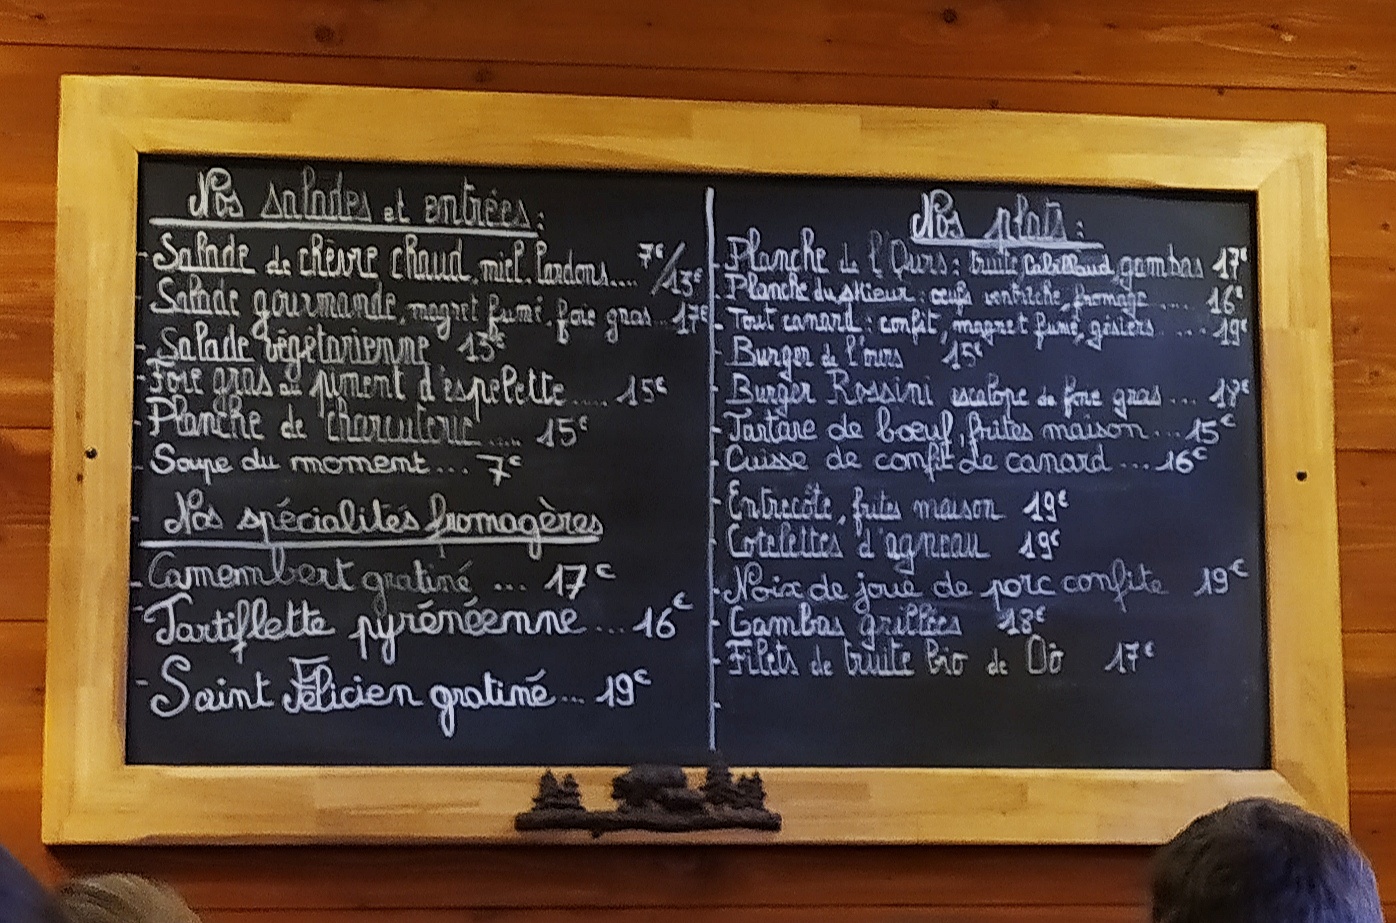 Nos salades et entrées :
- Salade de chèvre chaud, miel, lardons.... 7€/13€
- Salade gourmande, magret fumé, foie gras.. 17€
- Salade végétarienne 13€
- Foie gras et piment d'espelette..... 15€
- Planche de charcuterie..... 15€
- Soupe du moment... 7€
- Nos spécialités fromagères
- Camembert gratiné ... 17€
- Tartiflette pyrénéenne... 16€
- Saint Félicien gratiné... 19€
Nos plats :
- Planche de l'Ours : truite, Cabillaud, gambas 17€
- Planche du skieur : oeufs ventrèche, fromage ..... 16€
- Tout canard : confit, magret fumé, gésiers ..... 19€
- Burger de l'ours 15€
- Burger Rossini escalope de foie gras ...
- Tartare de bœuf, frites maison... 15€
- Cuisse de confit de canard ... 16€
- Entrecôte, frites maison 19€
- Cotelettes d'agneau 19€
- Noix de joue de porc confite 19€
- Gambas grillées 18€
- Filets de truite bio de Oô 17€
-